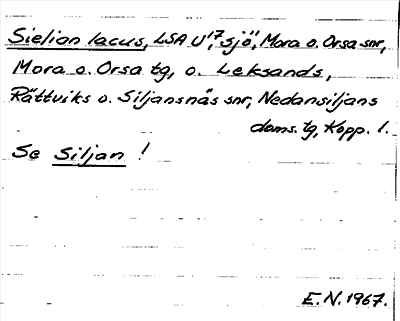 Sielian lacus, LSA U'17, "sjö", Mora o. Orsa snr,
Mora o. Orsa tg, o. Leksands,
Rättviks o. Siljansnäs snr, Nedansiljans
doms. tg, Kopp. l.
Se Siljan !
E.N. 1967.